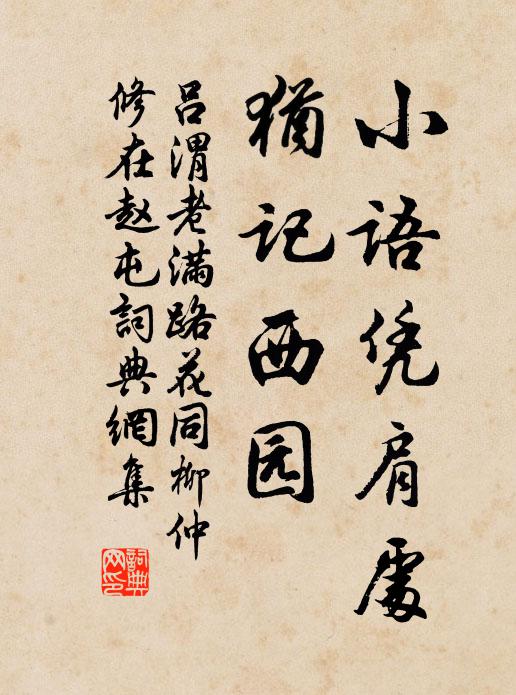 小語凭肩處
猶记西园
吕渭老满路花同柳仲
修在赵屯詞典網集
詞典
网印